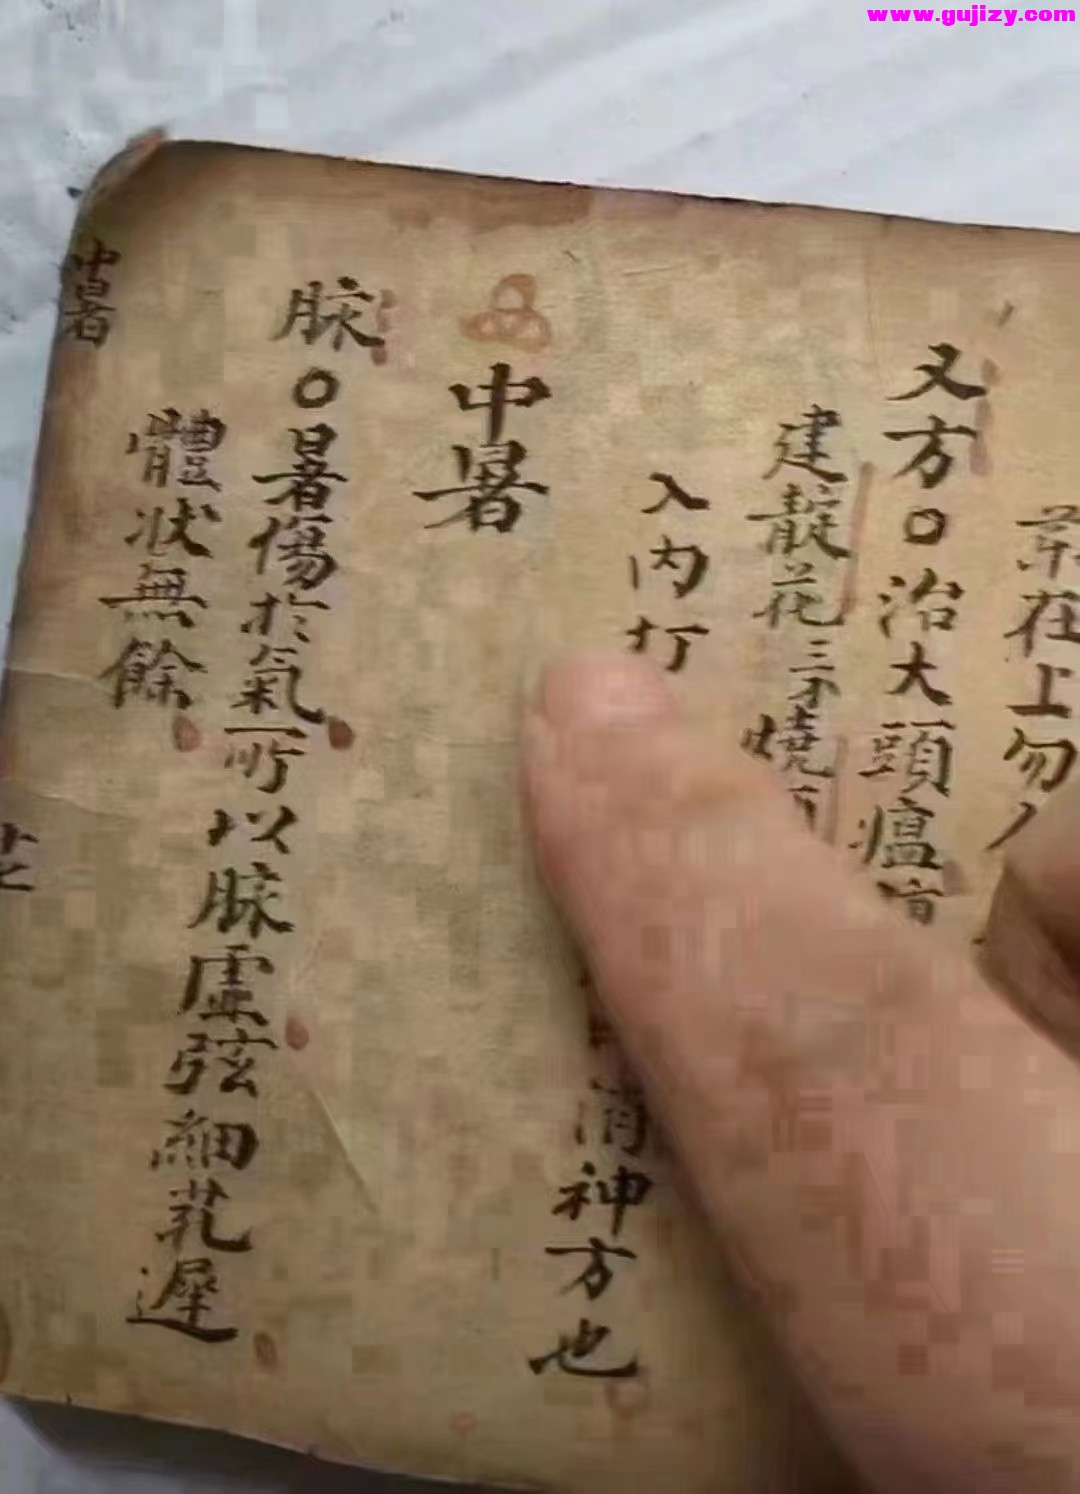 www.gujizy.com
在上勿
又方○治大頭瘟
建靛花三才燒
入內打
消神方也
中暑
脉○暑傷於氣所以脉虛弦細芤遲
體狀無餘
中暑